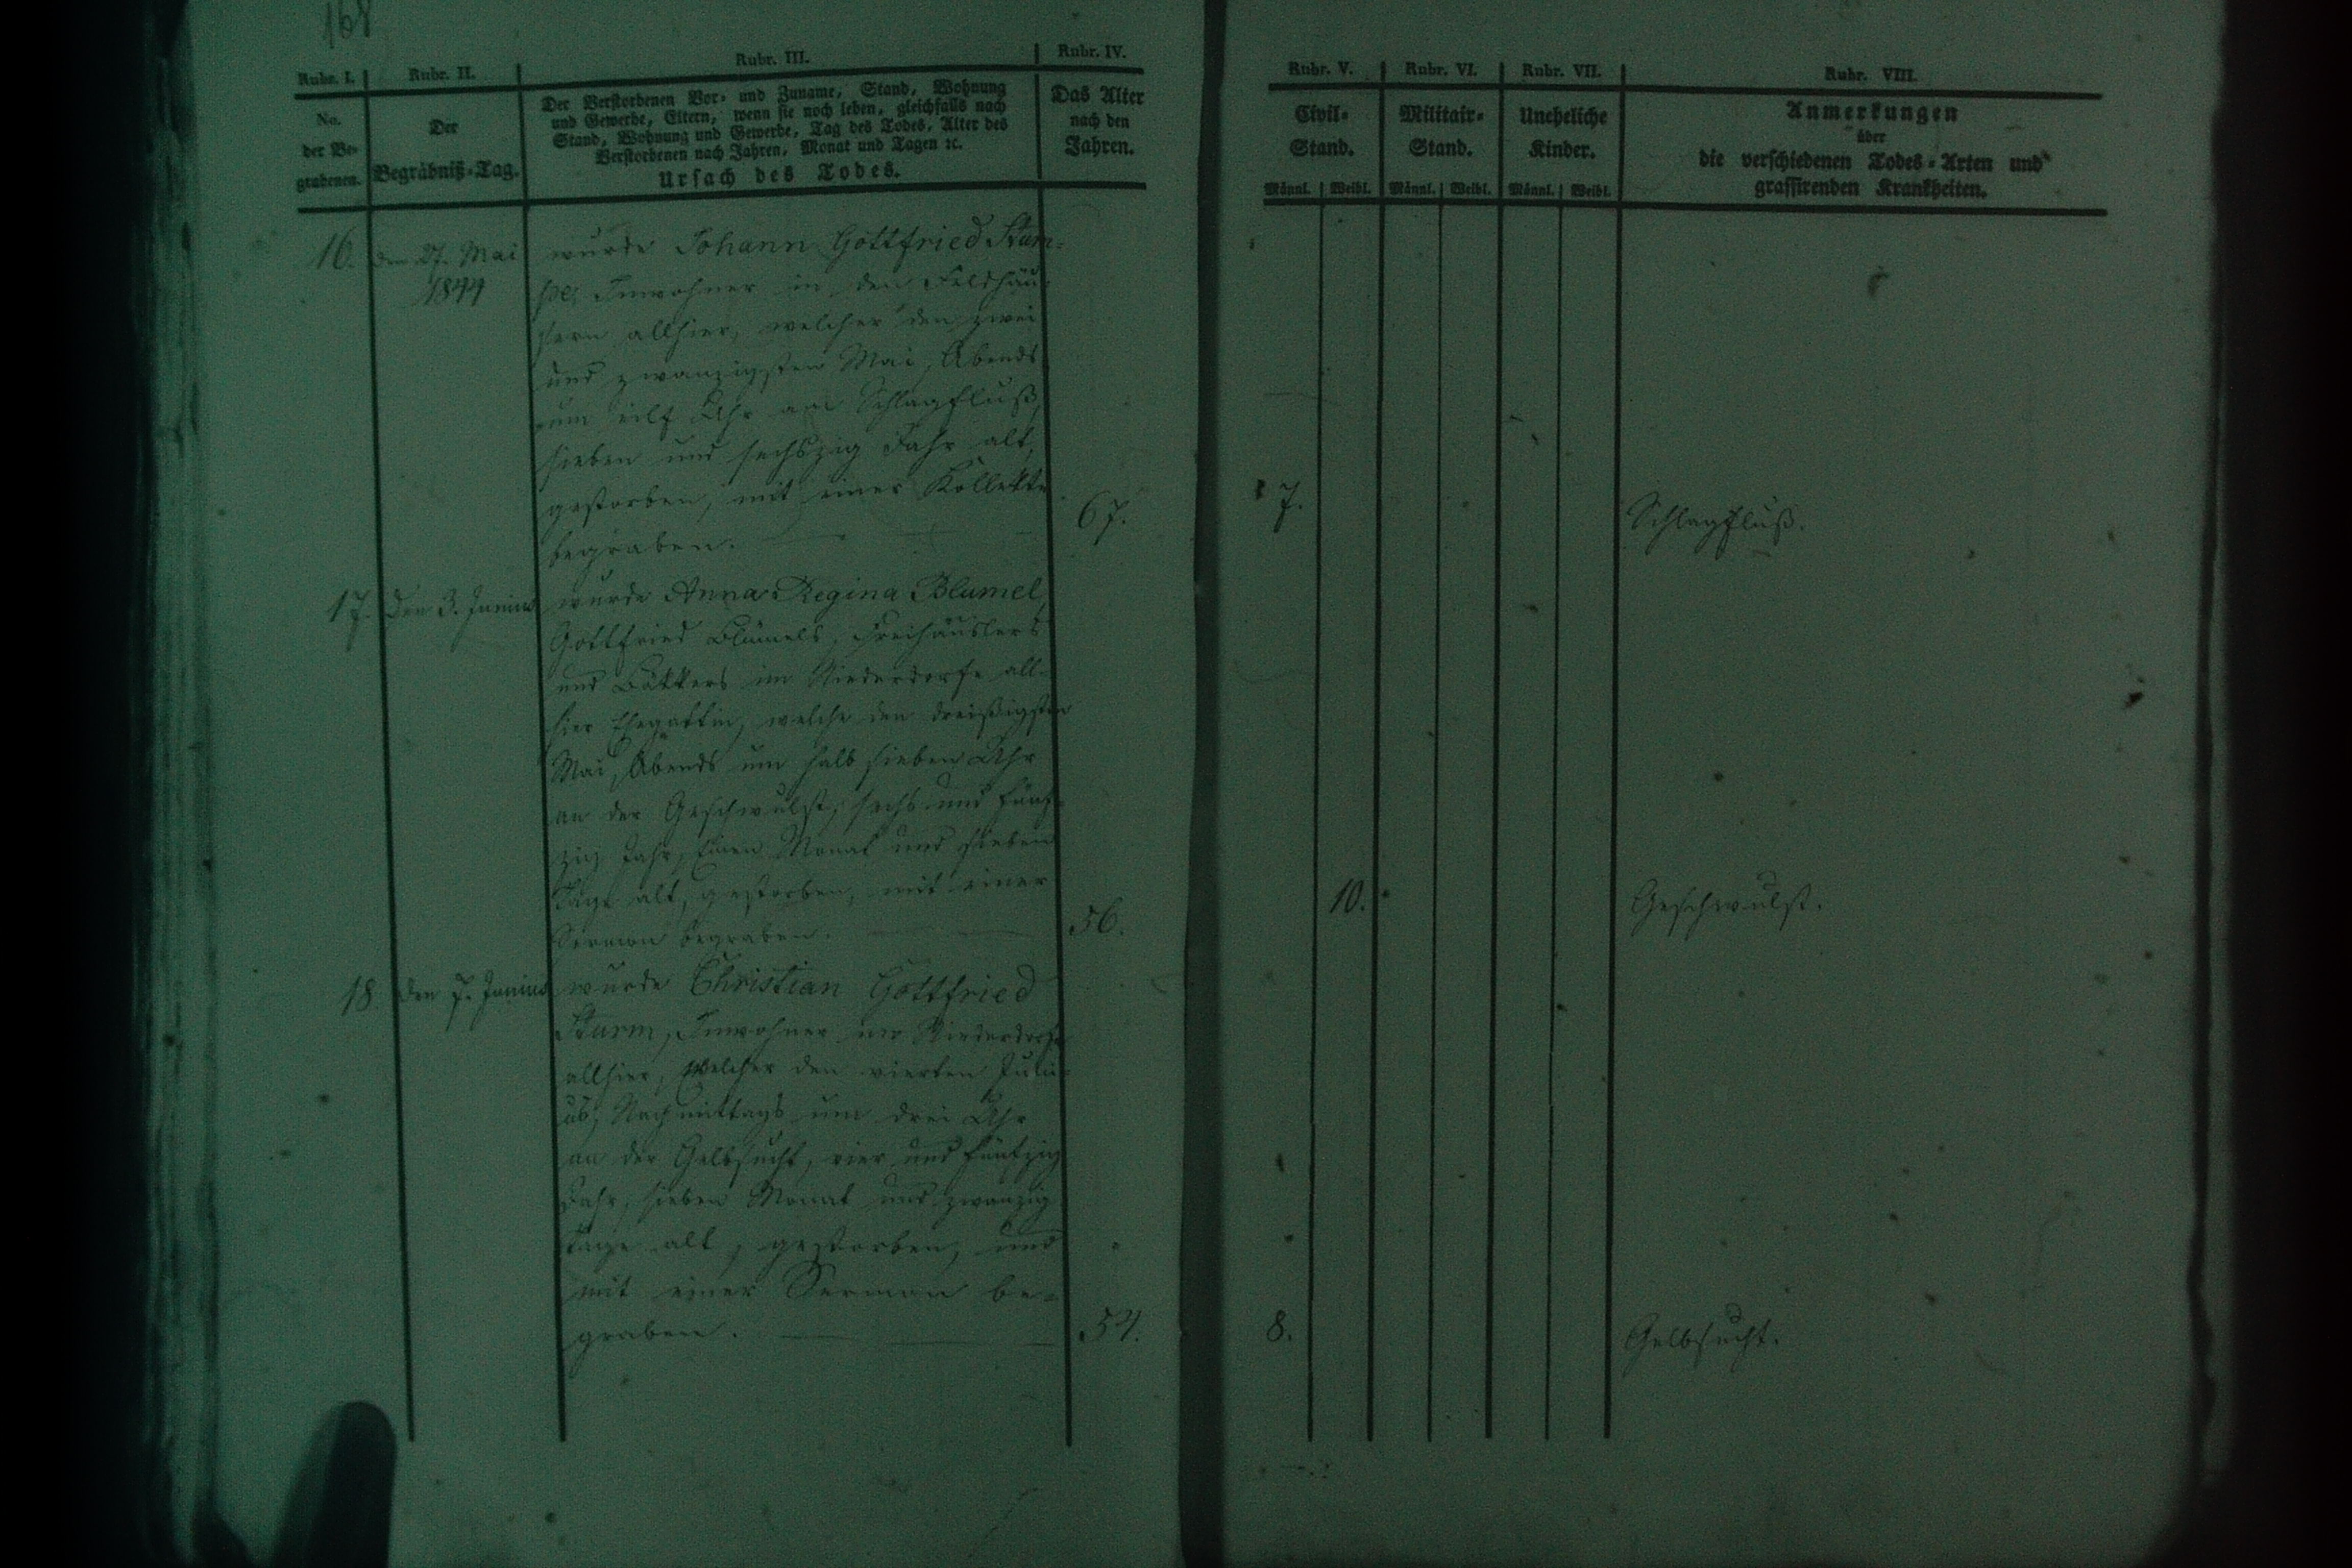 168
Rubr. I. Rubr. II. Rubr. III. Rubr. IV.
No. der Begrabenen.
Der Begräbniß-Tag.
Der Verstorbenen Vor- und Zuname, Stand, Wohnung
und Gewerbe, Eltern, wenn sie noch leben, gleichfalls nach
Stand, Wohnung und Gewerbe, Tag des Todes, Alter des
Verstorbenen nach Jahren, Monat und Tagen ꝛc.
Ursach des Todes.
Das Alter
nach den
Jahren.
16. den 27. Mai wurde Johann Gottfried Stum-
1844 pe, Inwohner in den Feldhäu-
sern allhier, welcher den zwei
und zwanzigsten Mai, Abends
um eilf Uhr am Schlagfluß,
sieben und sechszig Jahr alt,
gestorben, mit einer Kollekte
begraben. 67.
17. Den 3. Junius wurde Anna Regina Blümel,
Gottfried Blümels, Freihäuslers
und Bäkkers im Niederdorfe all-
hier Ehegattin, welche den dreißigsten
Mai, Abends um halb sieben Uhr
an der Geschwulst, sechs und fünf-
zig Jahr, Einen Monat und sieben
Tage alt, gestorben, mit einer
Sermon begraben. 56.
18. den 7. Junius wurde Christian Gottfried
Sturm, Inwohner im Niederdorfe
allhier, welcher den vierten Juni-
us, Nachmittags um drei Uhr
an der Gelbsucht, vier und fünfzig
Jahr, sieben Monat und zwanzig
Tage alt, gestorben, und
mit einer Sermon be-
graben. 54.
Rubr. V. Rubr. VI. Rubr. VII. Rubr. VIII.
Civil-
Stand.
Militair-
Stand.
Uneheliche
Kinder.
Anmerkungen
über
die verschiedenen Todes-Arten und
grassirenden Krankheiten.
Männl. Weibl. Männl. Weibl. Männl. Weibl.
7. Schlagfluß.
10. Geschwulst.
8. Gelbsucht.